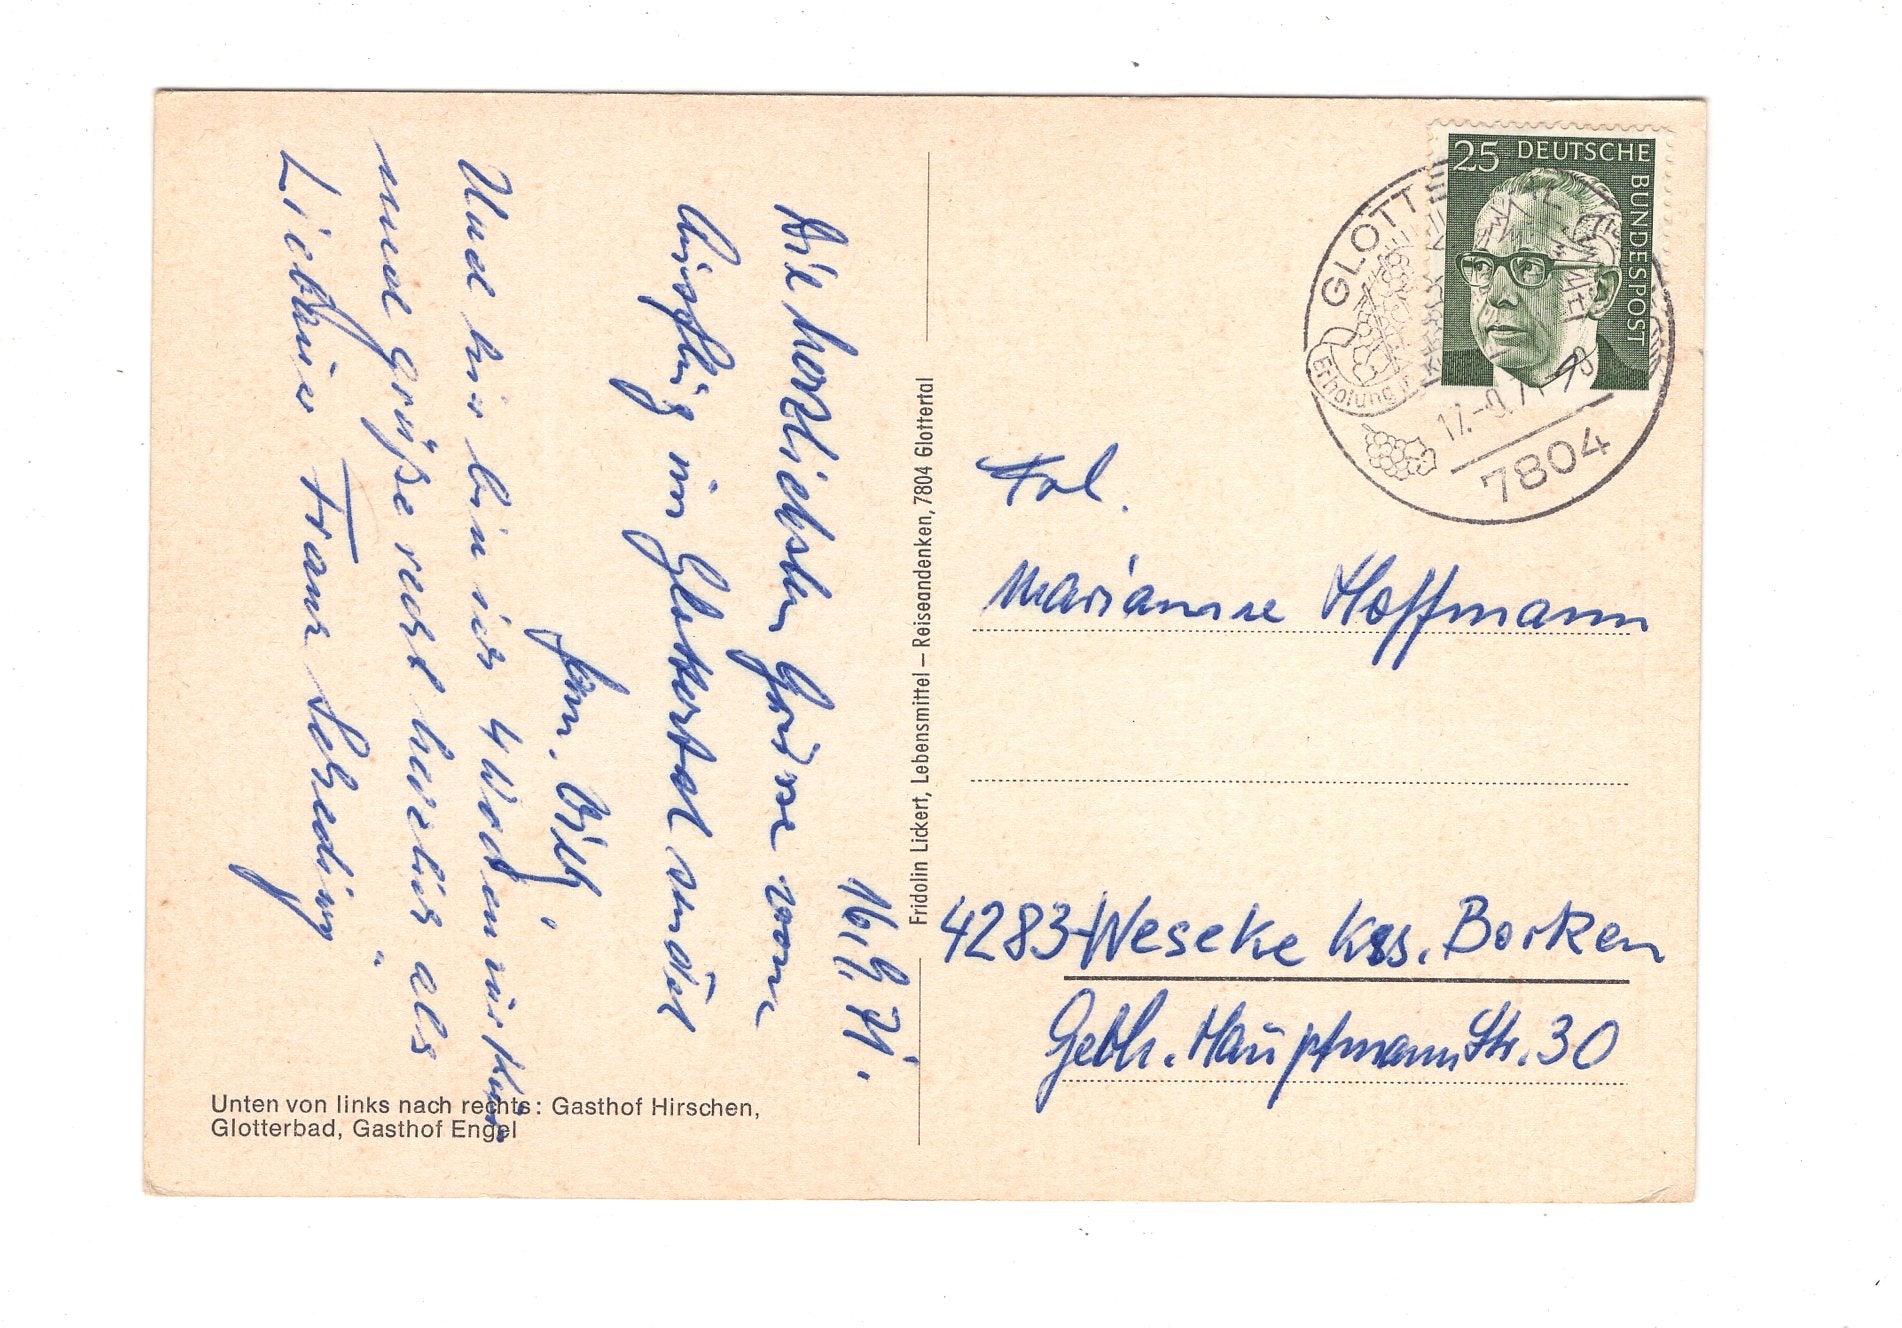 16.9.71.
Die herzlichsten Grüsse vom
Ausflug ins Glottertal sendet
Fam. Billy
Und hier bin ich 4 Wochen zur Kur
und grüße recht herzlich als
Liebhild Franz Scheding
Unten von links nach rechts: Gasthof Hirschen,
Glotterbad, Gasthof Engel
Fridolin Lickert, Lebensmittel – Reiseandenken, 7804 Glottertal
25 DEUTSCHE
BUNDESPOST
GLOTTE
Erholung i
17.-9.71-18
7804
Frl.
Marianne Hoffmann
4283-Weseke Krs. Borken
Gerh. Hauptmann Str. 30